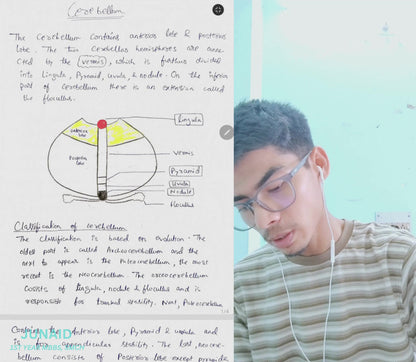 Cerebellum
The cerebellum contains anterior lobe & posterior
lobe. The two cerebellar hemispheres are conne
cted by the vermis, which is further divided
into Lingula, Pyramid, uvula, & nodule. On the inferior
part of cerebellum there is an extension called
the flocullus.
Lingula
Anterior
lobe
Posterior
lobe
vermis
Pyramid
Uvula
Nodule
flocullus
Classification of cerebellum
The classification is based on evolution. The
oldest part is called Archeocerebellum and the
next to appear is the Paleocerebellum, the most
recent is the Neocerebellum. The archeocerebellum
consists of lingula, nodule & flocullus and is
responsible for truncal stability. Next, Paleocerebellum
1/6
Contains the Anterior lobe, Pyramid & uvula and
is for appendicular stability. The last, neocere-
bellum consists of Posterior lobe except pyramid
JUNAID
1ST YEAR MBBS,